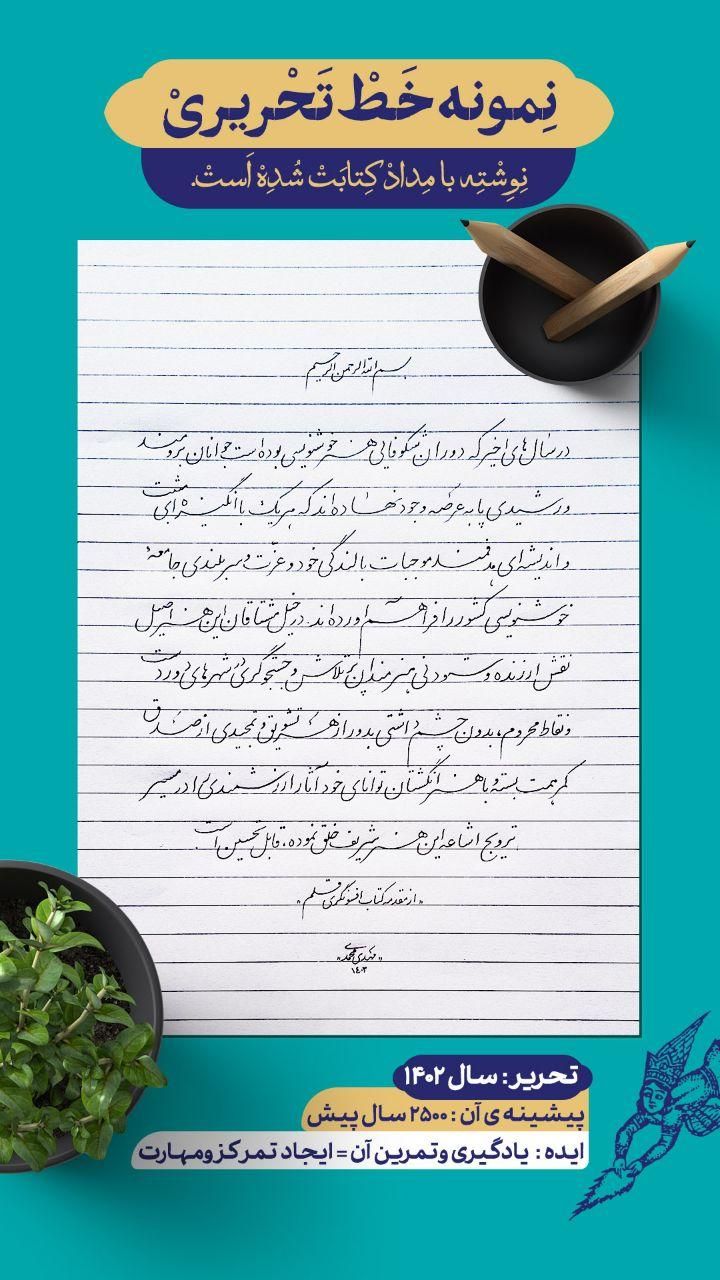 نِمونه خَطْ تَحْریریْ
نِوِشْتِه با مِدادْ کِتابَتْ شُدِهْ اَستْ.
بسم الله الرحمن الرحیم
در سال‌های اخیر که دوران شکوفایی هنر خوشنویسی بوده است جوانان برومند
و رشیدی پا به عرصه وجود نهاده‌اند که هریک با انگیزه‌ای مثبت
و اندیشه‌ای هدفمند موجبات بالندگی خود و عزّت و سربلندی جامعهٔ
خوشنویسی کشور را فراهم آورده‌اند. در خیل مشتاقان این هنر اصیل
نقش ارزنده و ستودنی هنرمندان پرتلاش و جستجوگری در شهرهای دوردست
و نقاط محروم، بدون چشم‌داشتی بدور از هر تشویق و تمجیدی از صدق
کمر همت بسته و با هنر انگشتان توانای خود آثار ارزشمندی را در مسیر
ترویج اشاعه این هنر شریف خلق نموده، قابل تحسین است
«از مقدمه کتاب افسونگری قلم»
«مهدی محمدی»
۱۴۰۲
تحریر : سال ۱۴۰۲
پیشینه ی آن : ۲۵۰۰ سال پیش
ایده : یادگیری و تمرین آن = ایجاد تمرکز و مهارت